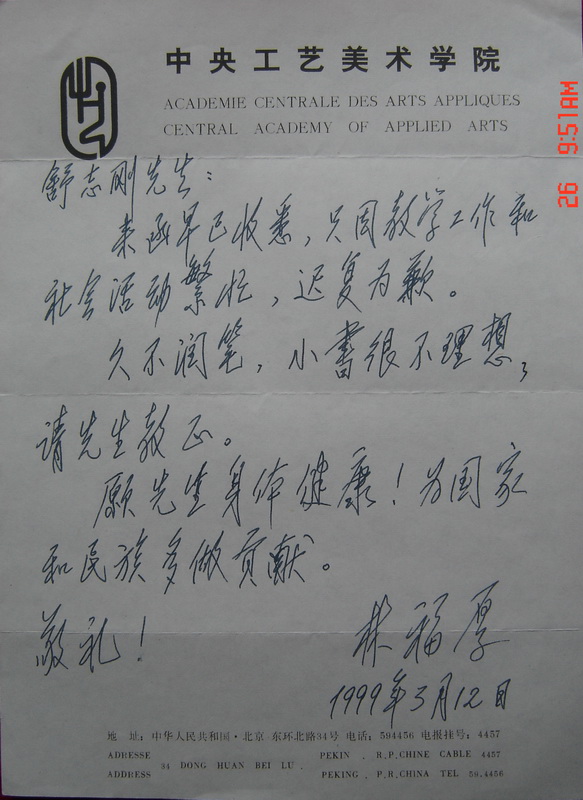 中央工艺美术学院
ACADEMIE CENTRALE DES ARTS APPLIQUES
CENTRAL ACADEMY OF APPLIED ARTS
26 9:51AM
舒志刚先生:
来函早已收悉,只因教学工作和
社会活动繁忙,迟复为歉。
久不润笔,小书很不理想,
请先生教正。
愿先生身体健康!为国家
和民族多做贡献。
敬礼!
林福厚
1999年3月12日
地 址: 中华人民共和国·北京 东环北路34号 电话: 594456 电报挂号: 4457
ADRESSE PEKIN . R.P.CHINE CABLE 4457
34 DONG HUAN BEI LU .
ADDRESS PEKING . P.R.CHINA TEL 59.4456